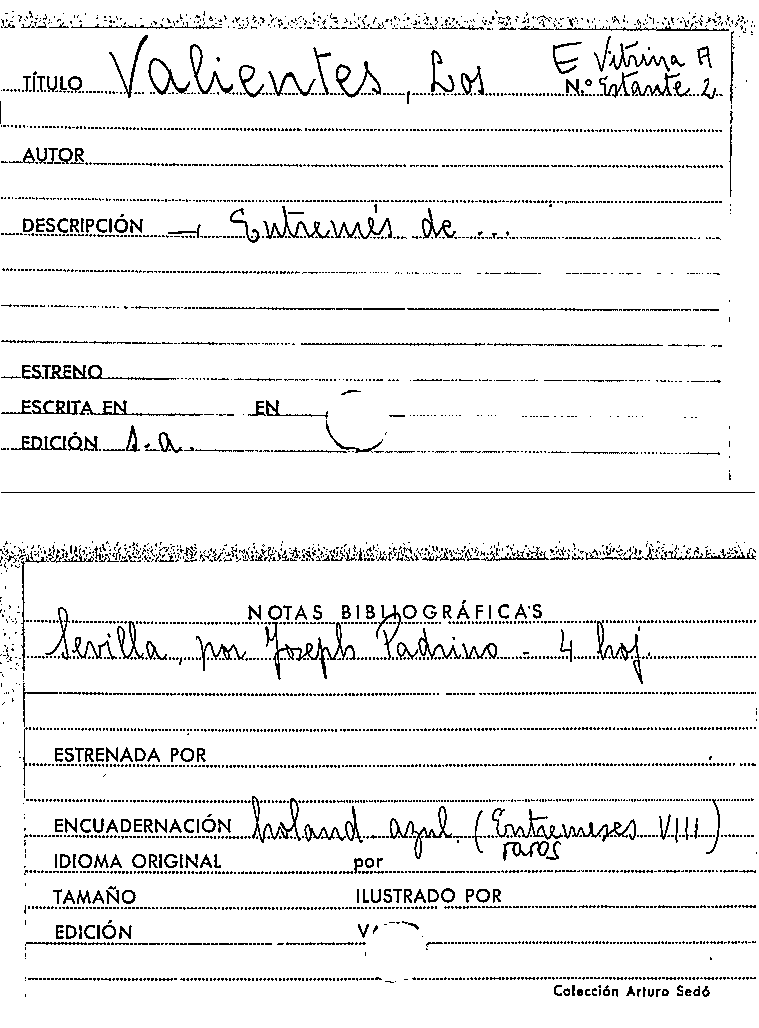 TÍTULO Valientes, Los E Vitrina A
N.º Estante 2
AUTOR
DESCRIPCIÓN — Entremés de ...
ESTRENO
ESCRITA EN EN
EDICIÓN s.a.
NOTAS BIBLIOGRÁFICAS
Sevilla, por Joseph Padrino - 4 hoj.
ESTRENADA POR
ENCUADERNACIÓN holand. azul. (Entremeses VIII)
raros
IDIOMA ORIGINAL por
TAMAÑO ILUSTRADO POR
EDICIÓN
Colección Arturo Sedó